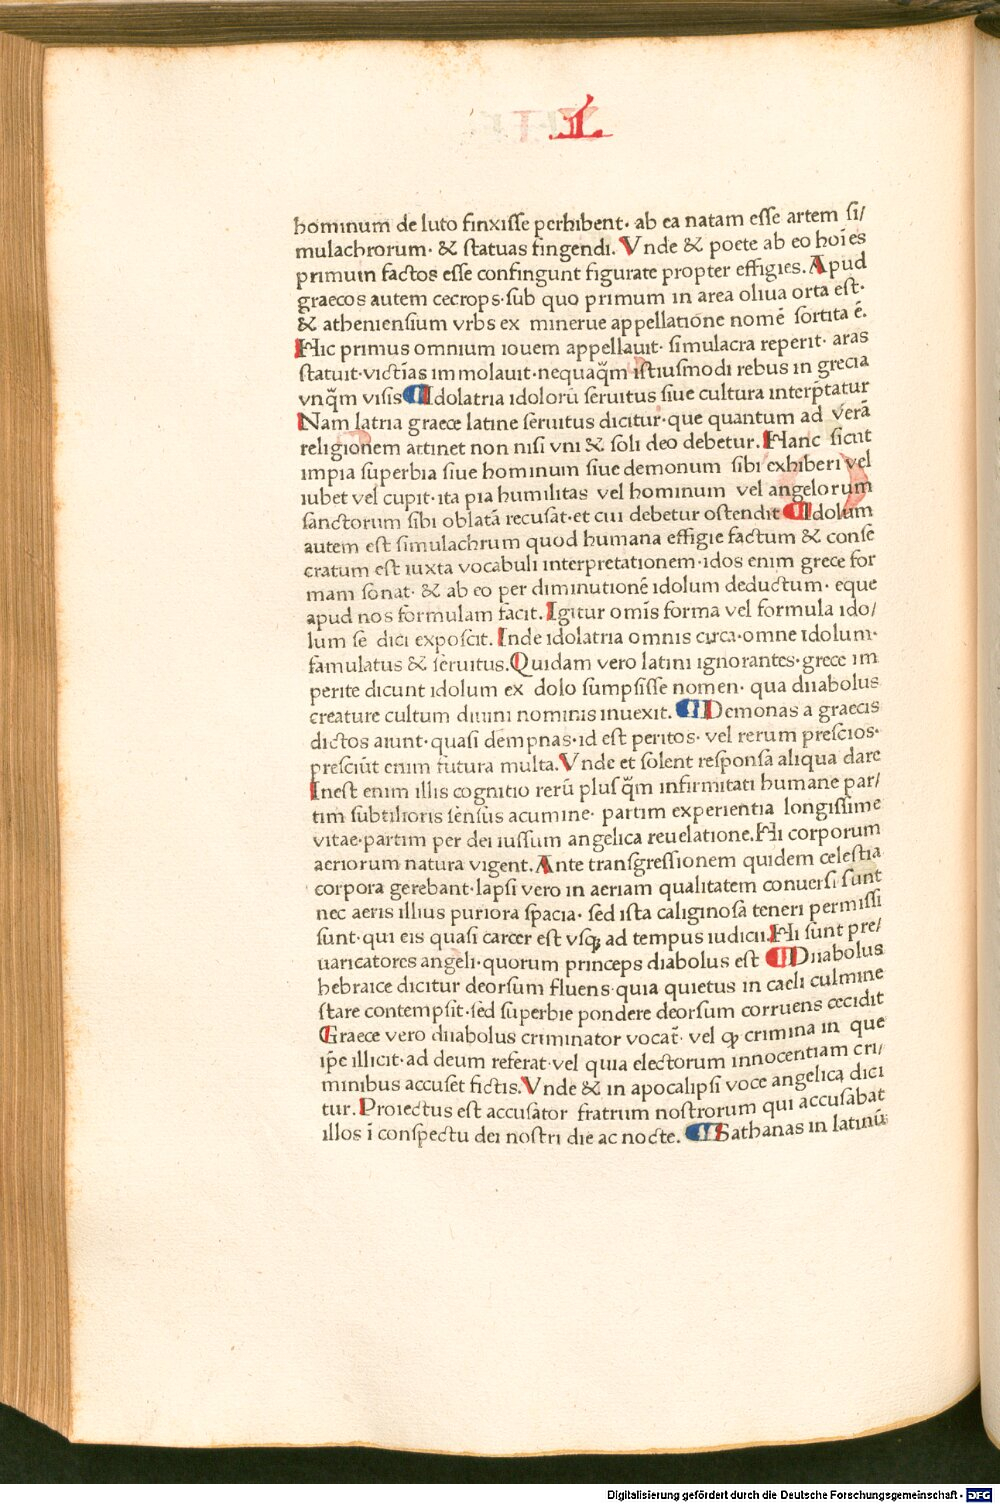 L
hominum de luto finxisſe perhibent· ab ea natam eſſe artem ſi/
mulachrorum· & ſtatuas fingendi. Vnde & poete ab eo hoīes
primum factos eſſe confingunt figurate propter effigies. Apud
graecos autem cecrops·ſub quo primum in area oliua orta eſt·
& athenienſium vrbs ex minerue appellatione nomē ſortita ē.
Hic primus omnium iouem appellauit· ſimulacra reperit· aras
ſtatuit·victīas immolauit·nequaq̃m iſtiuſmodi rebus in grecia
vnq̃m viſis ¶ Idolatria idolorū ſeruitus ſiue cultura interp̄tatur
Nam latria graece latine ſeruitus dicitur·que quantum ad verā
religionem artinet non niſi vni & ſoli deo debetur. Hanc ſicut
impia ſuperbia ſiue hominum ſiue demonum ſibi exhiberi vel
iubet vel cupit·ita pia humilitas vel hominum vel angelorum
ſanctorum ſibi oblatā recuſat·et cui debetur oſtendit ¶ Idolum
autem eſt ſimulachrum quod humana effigie factum & conſe
cratum eſt iuxta vocabuli interpretationem·idos enim grece for
mam ſonat· & ab eo per diminutionē idolum deductum· eque
apud nos formulam facit. Igitur omīs forma vel formula ido/
lum ſe dici expoſcit. Inde idolatria omnis circa·omne idolum·
famulatus & ſeruitus. Quidam vero latini ignorantes·grece im
perite dicunt idolum ex dolo ſumpſiſſe nomen· qua diiabolus
creature cultum diuini nominis inuexit. ¶ Demonas a graecis
dictos aiunt·quaſi dempnas·id eſt peritos· vel rerum preſcios·
preſciūt enim futura multa. Vnde et ſolent reſponſa aliqua dare
Ineſt enim illis cognitio rerū pluſq̃m infirmitati humane par/
tim ſubtilioris ſenſus acumine· partim experientia longiſſime
vitae·partim per dei iuſſum angelica reuelatione. Hi corporum
aeriorum natura vigent. Ante tranſgreſſionem quidem celeſtia
corpora gerebant·lapſi vero in aeriam qualitatem conuerſi ſunt
nec aeris illius puriora ſpacia· ſed iſta caliginoſa teneri permiſſi
ſunt·qui eis quaſi carcer eſt vſqꝫ ad tempus iudicii. Hi ſunt pre/
uaricatores angeli·quorum princeps diabolus eſt ¶ Diiabolus
hebraice dicitur deorſum fluens·quia quietus in caeli culmine
ſtare contempſit·ſed ſuperbie pondere deorſum corruens cecidit
Graece vero diiabolus criminator vocat̄· vel ꝙ crimina in que
ip̄e illicit·ad deum referat·vel quia electorum innocentiam cri/
minibus accuſet fictis. Vnde & in apocalipſi voce angelica dici
tur. Proiectus eſt accuſator fratrum noſtrorum qui accuſabat
illos ī conſpectu dei noſtri die ac nocte. ¶ Sathanas in latinū
Digitalisierung gefördert durch die Deutsche Forschungsgemeinschaft · DFG